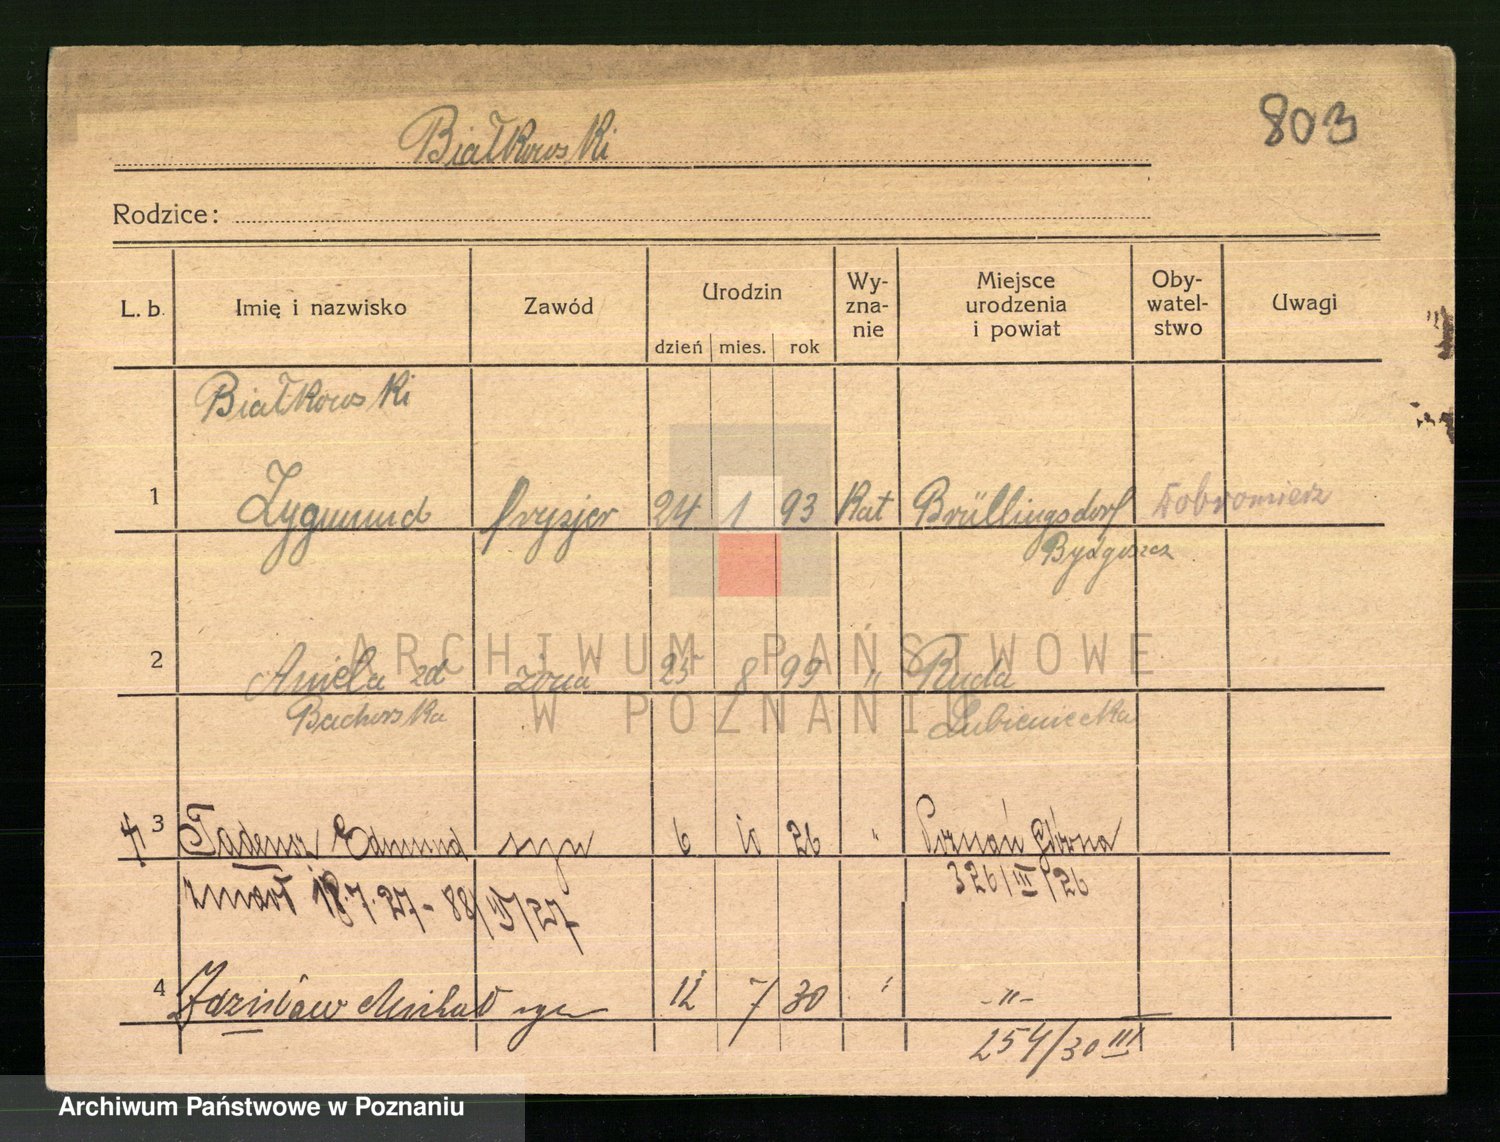 803
Białkowski
Rodzice:
L. b. Imię i nazwisko Zawód Urodzin dzień mies. rok Wy-zna-nie Miejsce urodzenia i powiat Oby-watel-stwo Uwagi
Białkowski
1 Zygmund fryzjer 24 1 93 Kat Brüllingsdorf Dobromierz
Bydgoszcz
2 Aniela zd żona 25 8 99 " Ruda
Bachorska Lubieniecka
3 Tadeusz Edmund syn 6 10 26 " Poznań Główna
326/III/26
zmarł 18.7.27 - 88/VI/27
4 Zdzisław Michał syn 12 7 30 " -"-
254/30 III
ARCHIWUM PAŃSTWOWE
W POZNANIU
Archiwum Państwowe w Poznaniu